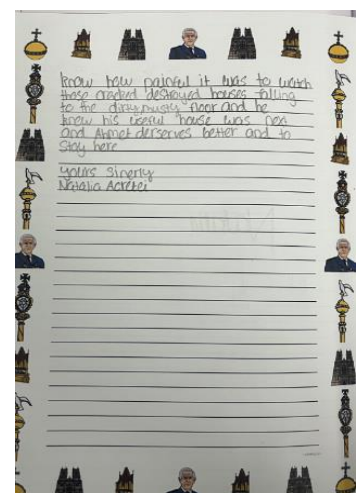 know how painful it was to watch
those cracked destroyed houses falling
to the dirty,musty floor and he
knew his useful house was nex
and Ahmet derserves better and to
stay here
yours sinerly
Natalia